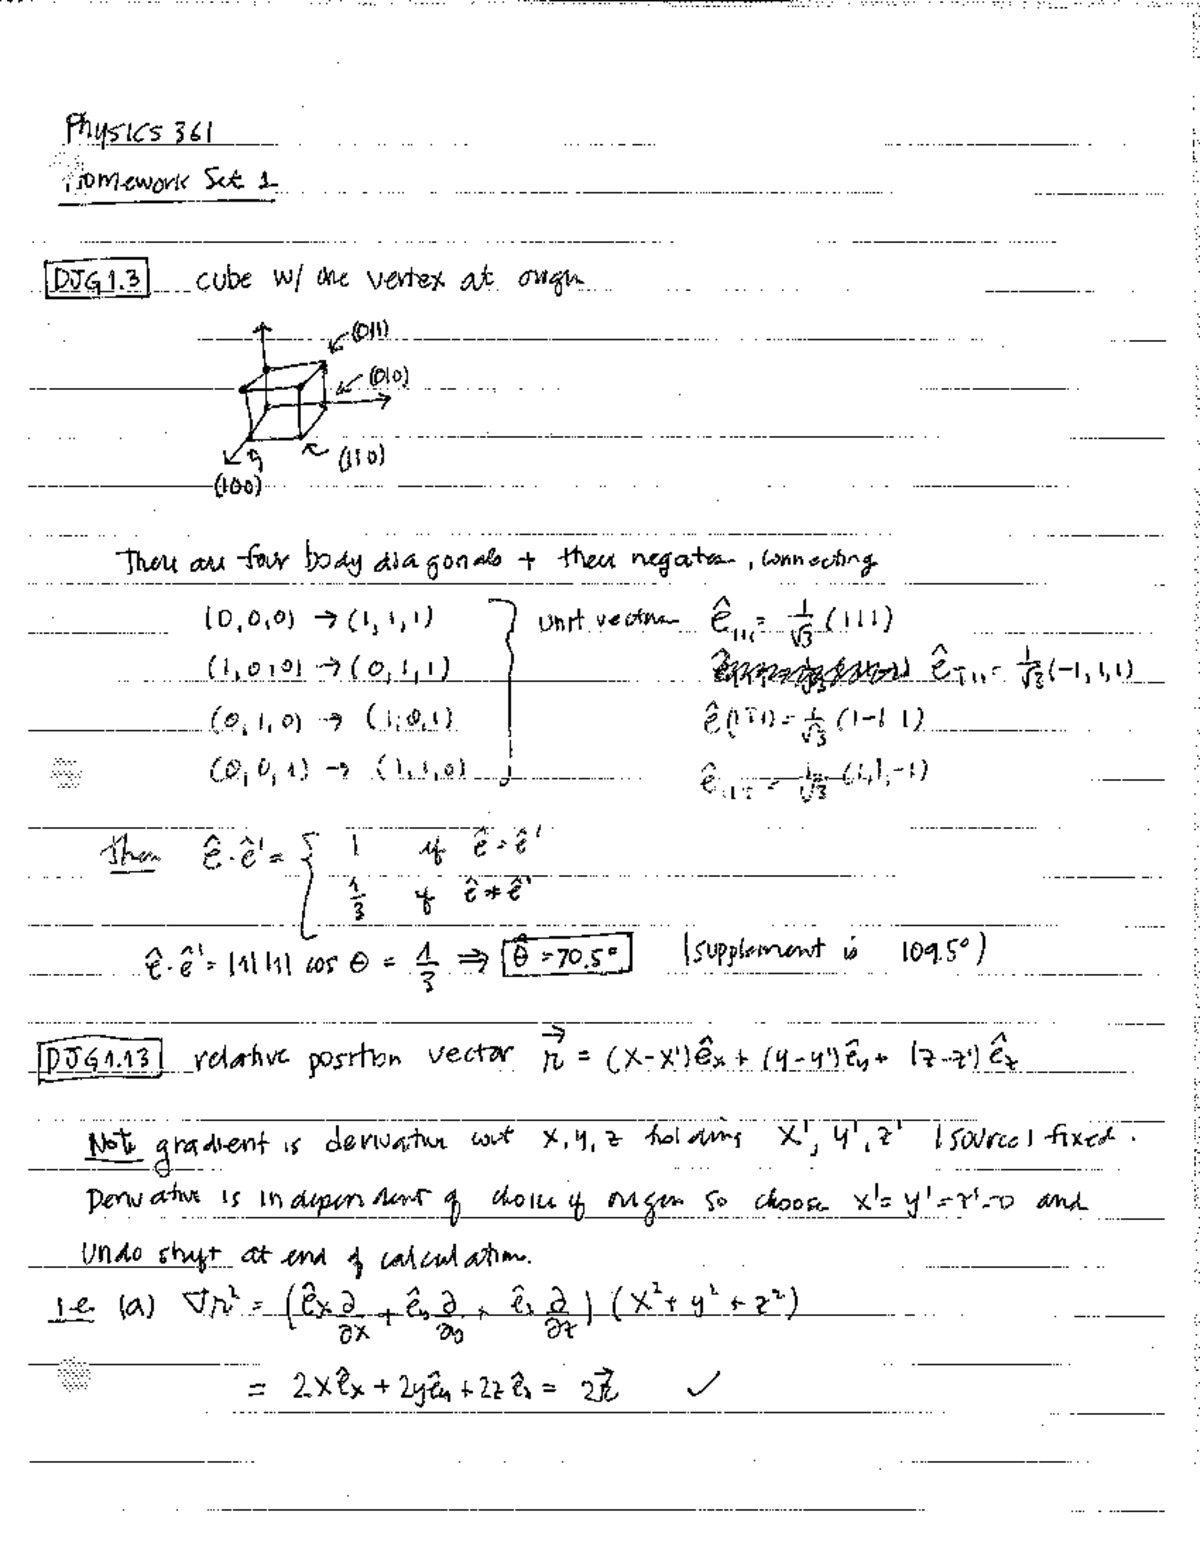 Physics 361
Homework Set 1
DJG 1.3 cube w/ one vertex at origin
(011)
(010)
(110)
(100)
There are four body diagonals + their negatives, connecting
(0,0,0) → (1,1,1) } unit vectors ê₁₁₁ = 1/√3 (111)
(1,0,0) → (0,1,1) ê_1̄11 = 1/√3 (-1,1,1)
(0,1,0) → (1,0,1) ê(11̄1) = 1/√3 (1-1 1)
(0,0,1) → (1,1,0) ê_111̄ = 1/√3 (1,1,-1)
Then ê·ê' = { 1 if ê = ê'
1/3 if ê ≠ ê'
ê·ê' = |1||1| cos θ = 1/3 ⇒ θ = 70.5° (supplement is 109.5°)
DJG 1.13 relative position vector r⃗ = (x-x')êx + (y-y')êy + (z-z')êz
Note gradient is derivative wrt x, y, z holding x', y', z' (source) fixed.
Derivative is independent of choice of origin so choose x'=y'=z'=0 and
undo shift at end of calculation.
i.e. (a) ∇r² = (êx ∂/∂x + êy ∂/∂y + êz ∂/∂z) (x² + y² + z²)
= 2xêx + 2yêy + 2zêz = 2r⃗ ✓